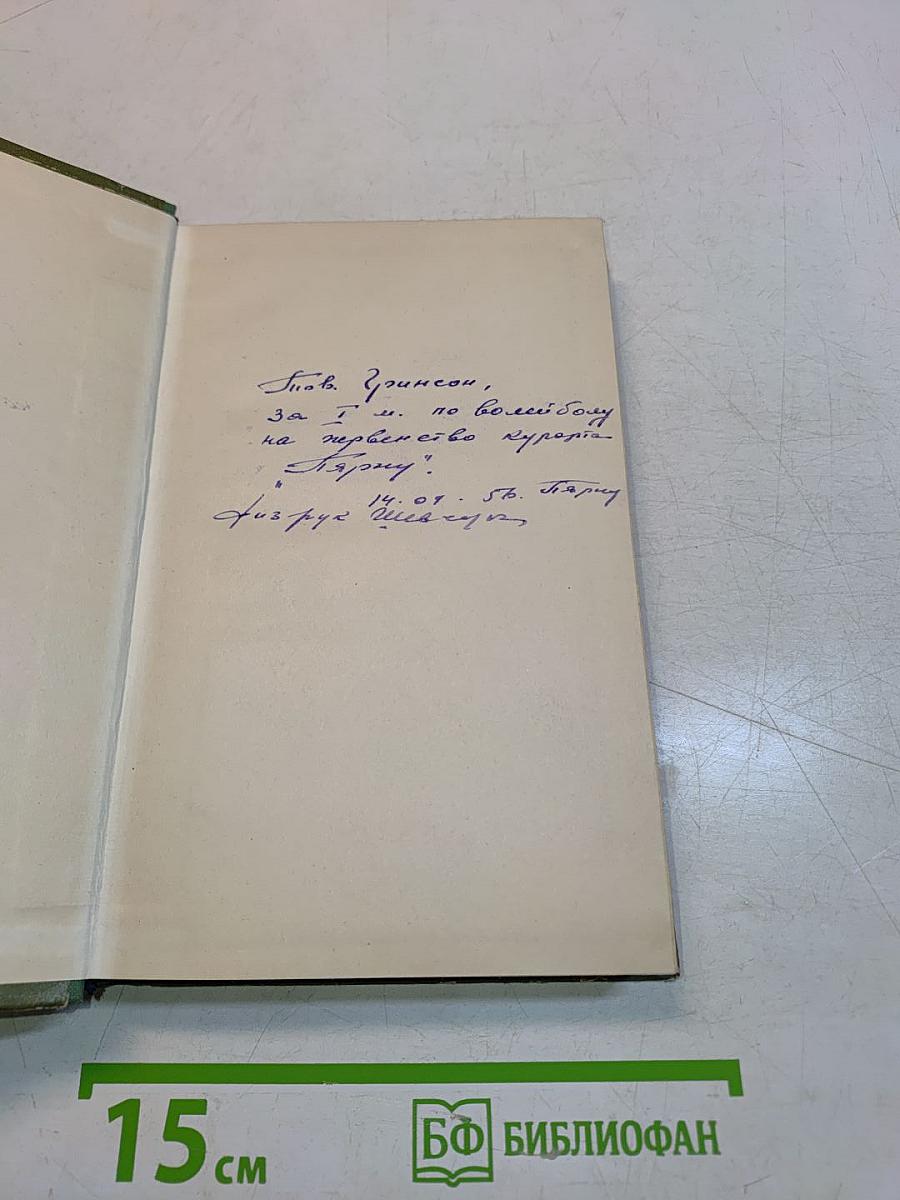 Тов. Гринсон,
за I м. по волейболу
на первенство курорта
"Пярну".
14.09.56. Пярну
Физрук Шевчук
15 см
БФ БИБЛИОФАН